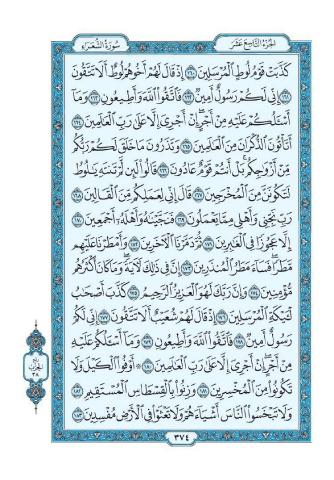 الجزء التاسع عشر
سورة الشعراء
كَذَّبَتْ قَوْمُ لُوطٍ الْمُرْسَلِينَ ١٦٠ إِذْ قَالَ لَهُمْ أَخُوهُمْ لُوطٌ أَلَا تَتَّقُونَ
١٦١ إِنِّي لَكُمْ رَسُولٌ أَمِينٌ ١٦٢ فَاتَّقُوا اللَّهَ وَأَطِيعُونِ ١٦٣ وَمَا
أَسْأَلُكُمْ عَلَيْهِ مِنْ أَجْرٍ إِنْ أَجْرِيَ إِلَّا عَلَى رَبِّ الْعَالَمِينَ ١٦٤
أَتَأْتُونَ الذُّكْرَانَ مِنَ الْعَالَمِينَ ١٦٥ وَتَذَرُونَ مَا خَلَقَ لَكُمْ رَبُّكُمْ
مِنْ أَزْوَاجِكُمْ بَلْ أَنْتُمْ قَوْمٌ عَادُونَ ١٦٦ قَالُوا لَئِنْ لَمْ تَنْتَهِ يَا لُوطُ
لَتَكُونَنَّ مِنَ الْمُخْرَجِينَ ١٦٧ قَالَ إِنِّي لِعَمَلِكُمْ مِنَ الْقَالِينَ ١٦٨
رَبِّ نَجِّنِي وَأَهْلِي مِمَّا يَعْمَلُونَ ١٦٩ فَنَجَّيْنَاهُ وَأَهْلَهُ أَجْمَعِينَ ١٧٠
إِلَّا عَجُوزًا فِي الْغَابِرِينَ ١٧١ ثُمَّ دَمَّرْنَا الْآخَرِينَ ١٧٢ وَأَمْطَرْنَا عَلَيْهِمْ
مَطَرًا فَسَاءَ مَطَرُ الْمُنْذَرِينَ ١٧٣ إِنَّ فِي ذَلِكَ لَآيَةً وَمَا كَانَ أَكْثَرُهُمْ
مُؤْمِنِينَ ١٧٤ وَإِنَّ رَبَّكَ لَهُوَ الْعَزِيزُ الرَّحِيمُ ١٧٥ كَذَّبَ أَصْحَابُ
لْأَيْكَةِ الْمُرْسَلِينَ ١٧٦ إِذْ قَالَ لَهُمْ شُعَيْبٌ أَلَا تَتَّقُونَ ١٧٧ إِنِّي لَكُمْ
رَسُولٌ أَمِينٌ ١٧٨ فَاتَّقُوا اللَّهَ وَأَطِيعُونِ ١٧٩ وَمَا أَسْأَلُكُمْ عَلَيْهِ
مِنْ أَجْرٍ إِنْ أَجْرِيَ إِلَّا عَلَى رَبِّ الْعَالَمِينَ ١٨٠ أَوْفُوا الْكَيْلَ وَلَا
تَكُونُوا مِنَ الْمُخْسِرِينَ ١٨١ وَزِنُوا بِالْقِسْطَاسِ الْمُسْتَقِيمِ ١٨٢
وَلَا تَبْخَسُوا النَّاسَ أَشْيَاءَهُمْ وَلَا تَعْثَوْا فِي الْأَرْضِ مُفْسِدِينَ ١٨٣
ربع
الحزب
٣٨
٣٧٤